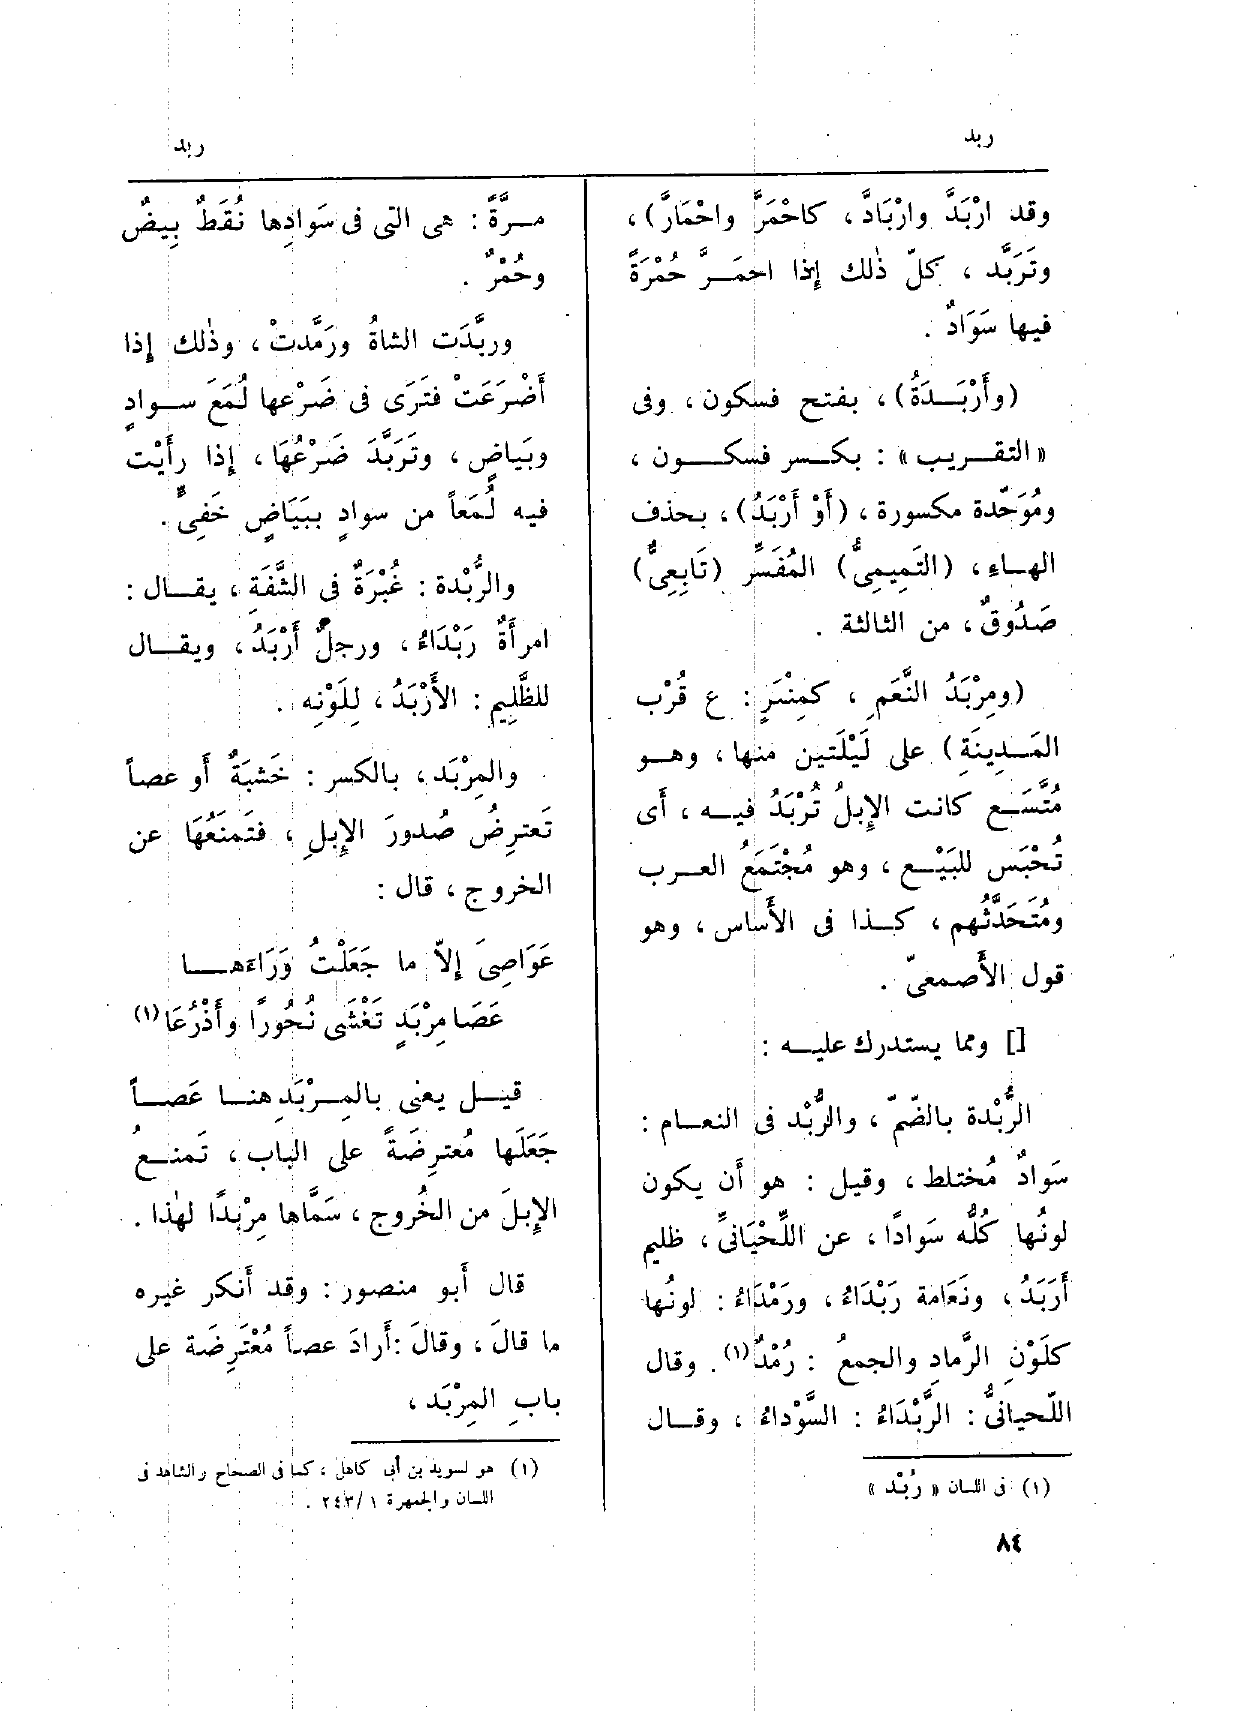 ربد
ربد
وقد ارْبَدَّ وارْبَادَّ ، كاحْمَرَّ واحْمَارَّ) ،
وتَرَبَّد ، كلّ ذٰلك إِذا احمَــرَّ حُمْرَةً
فيها سَوَادٌ .
(وأَرْبَــدَةُ) ، بفتح فسكون ، وفى
« التقــريب » : بكــسر فسكــــون ،
ومُوَحَّدة مكسورة ، (أَوْ أَرْبَدُ) ، بحذف
الهـاءِ ، (التَمِيمِىُّ) المُفَسِّر (تَابِعِىٌّ)
صَدُوقٌ ، من الثالثة .
(ومِرْبَدُ النَّعَمِ ، كمِنْبَرٍ : ع قُرْب
المَــدِينَةِ) على لَيْلَتَين منها ، وهــو
مُتَّسَــع كانت الإِبلُ تُرْبَدُ فيــه ، أَى
تُحْبَس للبَيْــع ، وهو مُجْتَمَعُ العــرب
ومُتَحَدَّثُهم ، كــذا فى الأَساس ، وهو
قول الأَصمعىّ .
[] ومما يستدرك عليــه :
الرُّبْدة بالضّمّ ، والرُّبْد فى النعــام :
سَوادٌ مُختلط ، وقيل : هو أَن يكون
لونُها كُلُّه سَوادًا ، عن اللِّحْيَانىِّ ، ظليم
أَرَبَدُ ، ونَعَامة رَبْدَاءُ ، ورَمْدَاءُ : لونُها
كلَوْنِ الرَّمادِ والجمعُ : رُمْدٌ(١) . وقال
اللّحيانىُّ : الرَّبْدَاءُ : السَّوْداءُ ، وقــال
(١) فى اللسان « رُبْد »
مــرَّةً : هى التى فى سَوادِها نُقَطٌ بِيضٌ
وحُمْرٌ .
وربَّدَت الشاةُ ورَمَّدتْ ، وذٰلك إِذا
أَضْرَعَتْ فتَرَى فى ضَرْعها لُمَعَ ســوادٍ
وبَياضٍ ، وتَرَبَّدَ ضَرْعُهَا ، إِذا رأَيْت
فيه لُمَعاً من سوادٍ ببَيَاضٍ خَفِىٍّ .
والرُّبْدة : غُبْرَةٌ فى الشَّفَةِ ، يقــال :
امرأَةٌ رَبْدَاءُ ، ورجلٌ أَرْبَدُ ، ويقــال
للظَّلِيم : الأَرْبَدُ ، لِلَوْنِه .
والمِرْبَد ، بالكسر : خَشبَةٌ أَو عصاً
تَعترِضُ صُدورَ الإِبلِ ، فتَمنَعُهَا عن
الخروج ، قال :
عَوَاصِىَ إِلاّ ما جَعَلْتُ وَرَاءَهــــا
عَصَا مِرْبَدٍ تَغْشَى نُحُورًا وأَذْرُعَا(١)
قيــل يعنى بالمِــرْبَدِ هنــا عَصــاً
جَعَلَها مُعترِضَةً على الباب ، تَمنــعُ
الإِبلَ من الخُروج ، سَمَّاها مِرْبَدًا لهٰذا .
قال أَبو منصور : وقد أَنكر غيره
ما قالَ ، وقالَ : أَرادَ عصاً مُعْتَرِضَة على
بابِ المِرْبَد ،
(١) هو لسويد بن أبى كاهل ، كما فى الصحاح والشاهد فى
اللسان والجمهرة ١ /٢٤٣ .
٨٤